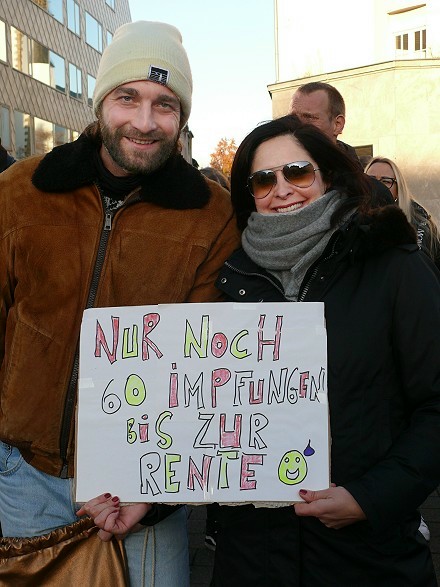 NUR NOCH
60 iMPFUNGEN
BiS ZUR
RENTE